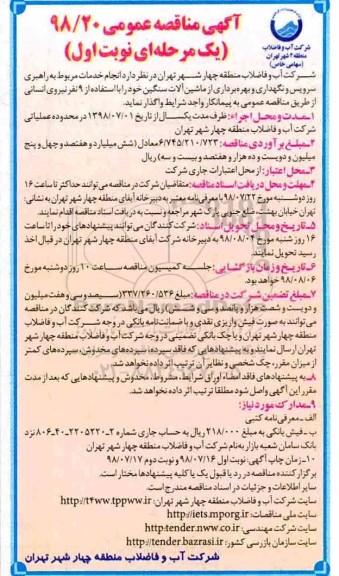 آگهی مناقصه عمومی ۹۸/۲۰
(یک مرحله‌ای نوبت اول)
شرکت آب و فاضلاب
منطقه ۴ شهر تهران
(سهامی خاص)
شرکت آب و فاضلاب منطقه چهار شهر تهران در نظر دارد انجام خدمات مربوط به راهبری
سرویس و نگهداری و بهره‌برداری از ماشین آلات سنگین خود را با استفاده از ۹ نفر نیروی انسانی
از طریق مناقصه عمومی به پیمانکار واجد شرایط واگذار نماید.
۱ـ مدت و محل اجراء: ظرف مدت یکسال از تاریخ ۱۳۹۸/۰۷/۰۱ در محدوده عملیاتی
شرکت آب و فاضلاب منطقه چهار شهر تهران
۲ـ مبلغ برآوردی مناقصه: ۶/۷۴۵/۲۱۰/۷۲۳ معادل (شش میلیارد و هفتصد و چهل و پنج
میلیون و دویست و ده هزار و هفتصد و بیست و سه) ریال
۳ـ محل اعتبار: از محل اعتبارات جاری شرکت
۴ـ مهلت و محل دریافت اسناد مناقصه: متقاضیان شرکت در مناقصه می‌توانند حداکثر تا ساعت ۱۶
روز دوشنبه مورخ ۹۸/۰۷/۲۲ با معرفی‌نامه معتبر به دبیرخانه آبفای منطقه چهار شهر تهران به نشانی:
تهران خیابان بهشتی ضلع جنوبی پارک شهر مراجعه و نسبت به دریافت اسناد مناقصه اقدام نمایند.
۵ـ تاریخ و محل تحویل اسناد: شرکت کنندگان می‌توانند پیشنهادهای خود را تا ساعت
۱۶ روز شنبه مورخ ۹۸/۰۸/۰۴ به دبیرخانه شرکت آبفای منطقه چهار شهر تهران در قبال اخذ
رسید تحویل نمایند.
۶ـ تاریخ و زمان بازگشایی: جلسه کمیسیون مناقصه ساعت ۱۰ روز دوشنبه مورخ
۹۸/۰۸/۰۶ خواهد بود.
۷ـ مبلغ تضمین شرکت در مناقصه: مبلغ ۳۳۷/۲۶۰/۵۳۶ (سیصد و سی و هفت میلیون
و دویست و شصت هزار و پانصد و سی و شش) ریال می‌باشد که شرکت کنندگان در مناقصه
می‌توانند به صورت فیش واریزی نقدی و یا ضمانت‌نامه بانکی در وجه شرکت آب و فاضلاب
منطقه چهار شهر تهران و یا چک بانکی تضمینی در وجه شرکت آب و فاضلاب منطقه چهار شهر
تهران ارسال نمایند و به پیشنهادهایی که فاقد سپرده، سپرده‌های مخدوش، سپرده‌های کمتر
از میزان مقرر، چک شخصی و نظایر آن ترتیب اثر داده نخواهد شد.
۸ـ به پیشنهادهای فاقد امضاء، اوراق شرایط، مشروط، مخدوش و پیشنهادهایی که بعد از مدت
مقرر این آگهی واصل شود مطلقاً ترتیب اثر داده نخواهد شد.
۹ـ مدارک مورد نیاز:
الف ـ معرفی‌نامه کتبی
ب ـ فیش بانکی به مبلغ ۲۱۸/۰۰۰ ریال به حساب جاری شماره ۲ـ۵۵۲۰ـ۴۰ـ۸۰۶ نزد
بانک سامان شعبه بازار به‌نام شرکت آب و فاضلاب منطقه چهار شهر تهران
۱۰ـ زمان چاپ آگهی: نوبت اول ۹۸/۰۷/۱۶ و نوبت دوم ۹۸/۰۷/۱۷
برگزار کننده مناقصه در رد یا قبول یک یا کلیه پیشنهادها مختار است.
سایر اطلاعات و جزئیات در اسناد مناقصه مندرج است.
سایت شرکت آب و فاضلاب منطقه چهار شهر تهران: http://t4ww.tppww.ir
سایت ملی مناقصات: http://iets.mporg.ir
سایت شرکت مهندسی: http:tender.nww.co.ir
سایت سازمان بازرسی کشور: http://tender.bazrasi.ir
شرکت آب و فاضلاب منطقه چهار شهر تهران